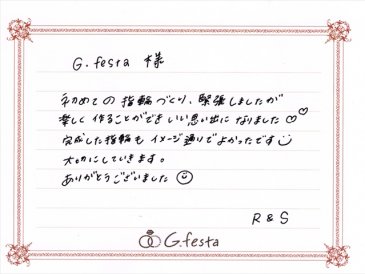 G.festa 様
初めての指輪づくり、緊張しましたが
楽しく作ることができいい思い出になりました♡♡
完成した指輪もイメージ通りでよかったです
大切にしていきます。
ありがとうございました
R & S
G.festa